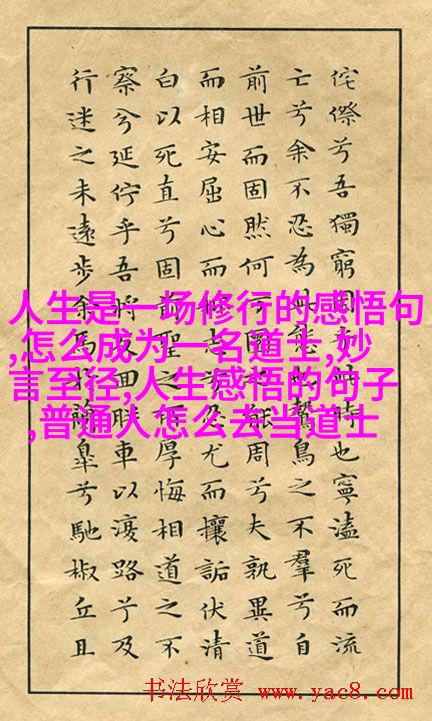 人生是一场修行的感悟句
,怎么成为一名道士,妙
言至径,人生感悟的句子
,普通人怎么去当道士
侘傺兮吾獨窮困乎此時也寧溘死而流
亡兮余不忍為此態也鷙鳥之不羣兮自
前世而固然何方圜之能周兮夫孰異道
而相安屈心而抑志兮忍尤而攘詬伏清
白以死直兮固前聖之所厚悔相道之不
察兮延佇乎吾將反回朕車以復路兮及
行迷之未遠步余馬於蘭皋兮馳椒丘且
书法欣赏 www.yac8.com